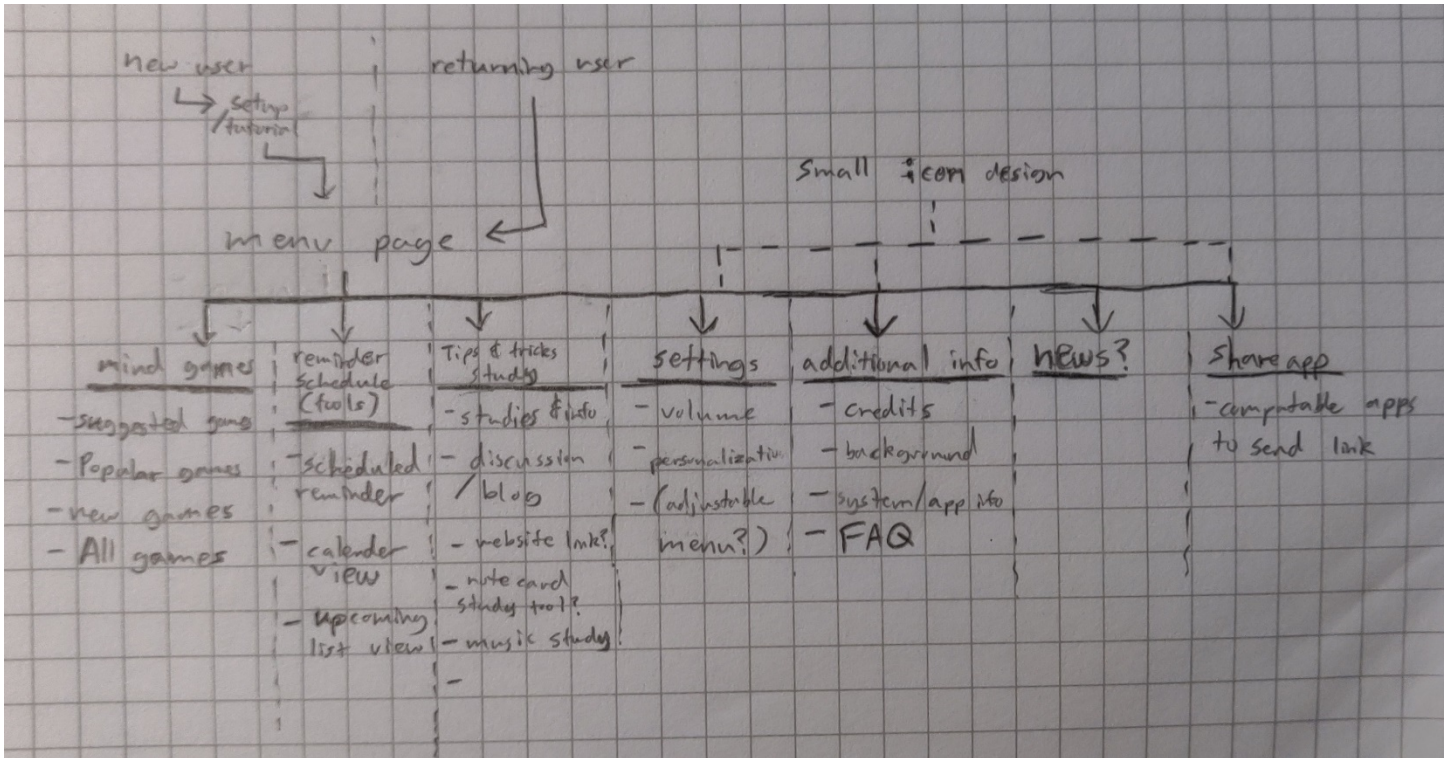 new user
returning user
setup
/tutorial
small icon design
menu page
mind games
-suggested games
-Popular games
-new games
- All games
reminder
schedule
(tools)
-scheduled
reminder
- calender
view
- upcoming
list view
Tips & tricks
study
- studies & info
- discussion
/blog
- website link?
- note card
study tool?
- music study?
-
settings
- volume
- personalizatio
- (adjustable
menu?)
additional info
- credits
- background
- system/app info
- FAQ
news?
share app
- computable apps
to send link